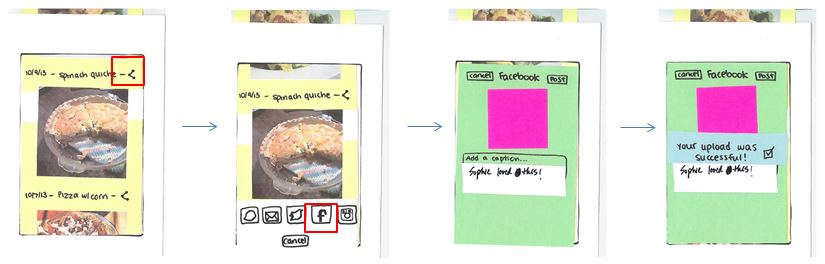 10/9/13 - spinach quiche -
10/7/13 - Pizza w/corn -
10/9/13 - spinach quiche -
f
cancel
cancel Facebook POST
Add a caption...
Sophie loved this!
cancel Facebook POST
Your upload was
successful!
Sophie loved this!